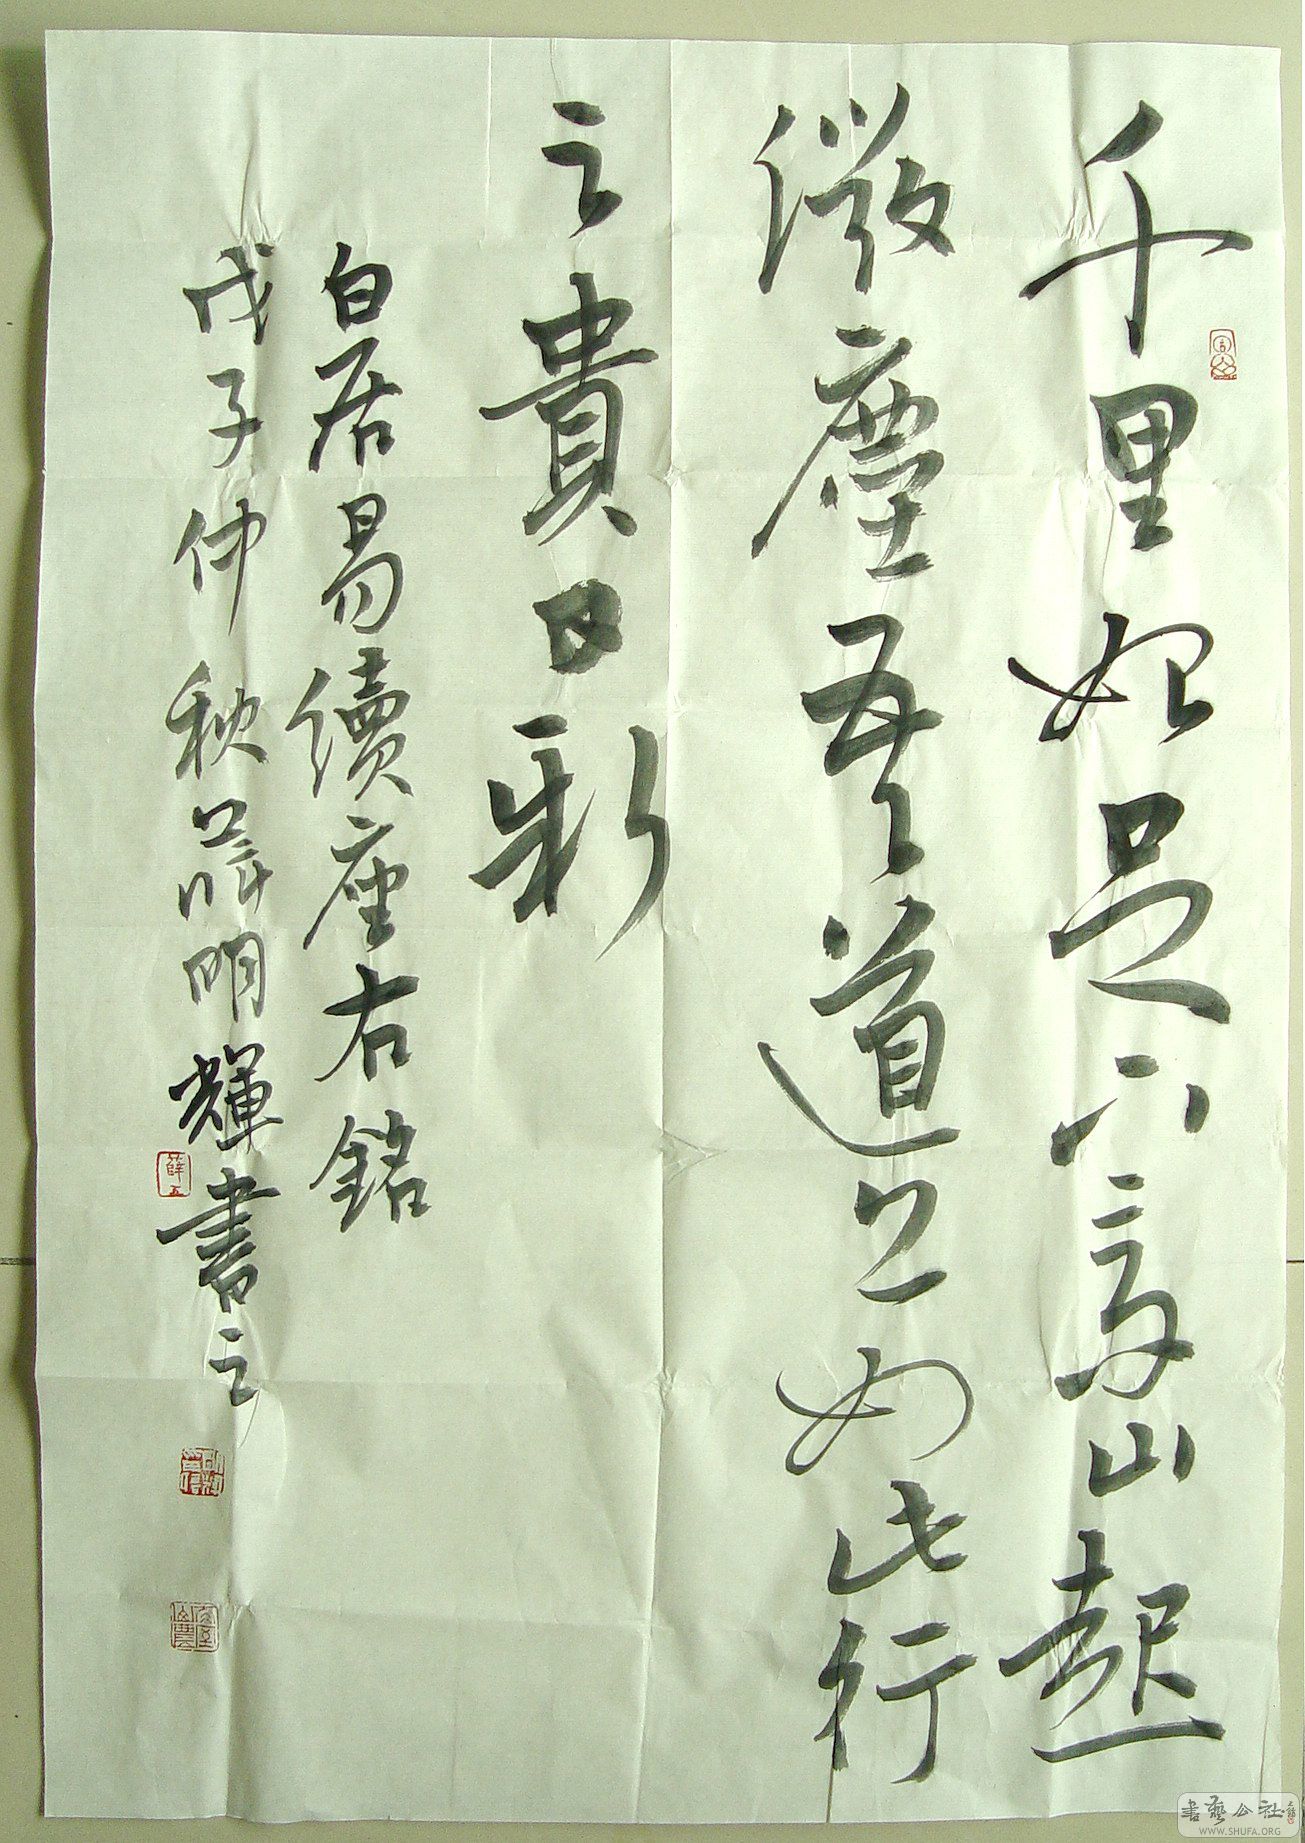 千里始足下高山起
微塵吾道亦如此行
之貴日新
白居易續座右銘
戊子仲秋薛明輝書之
薛五
書藝公社
WWW.SHUFA.ORG